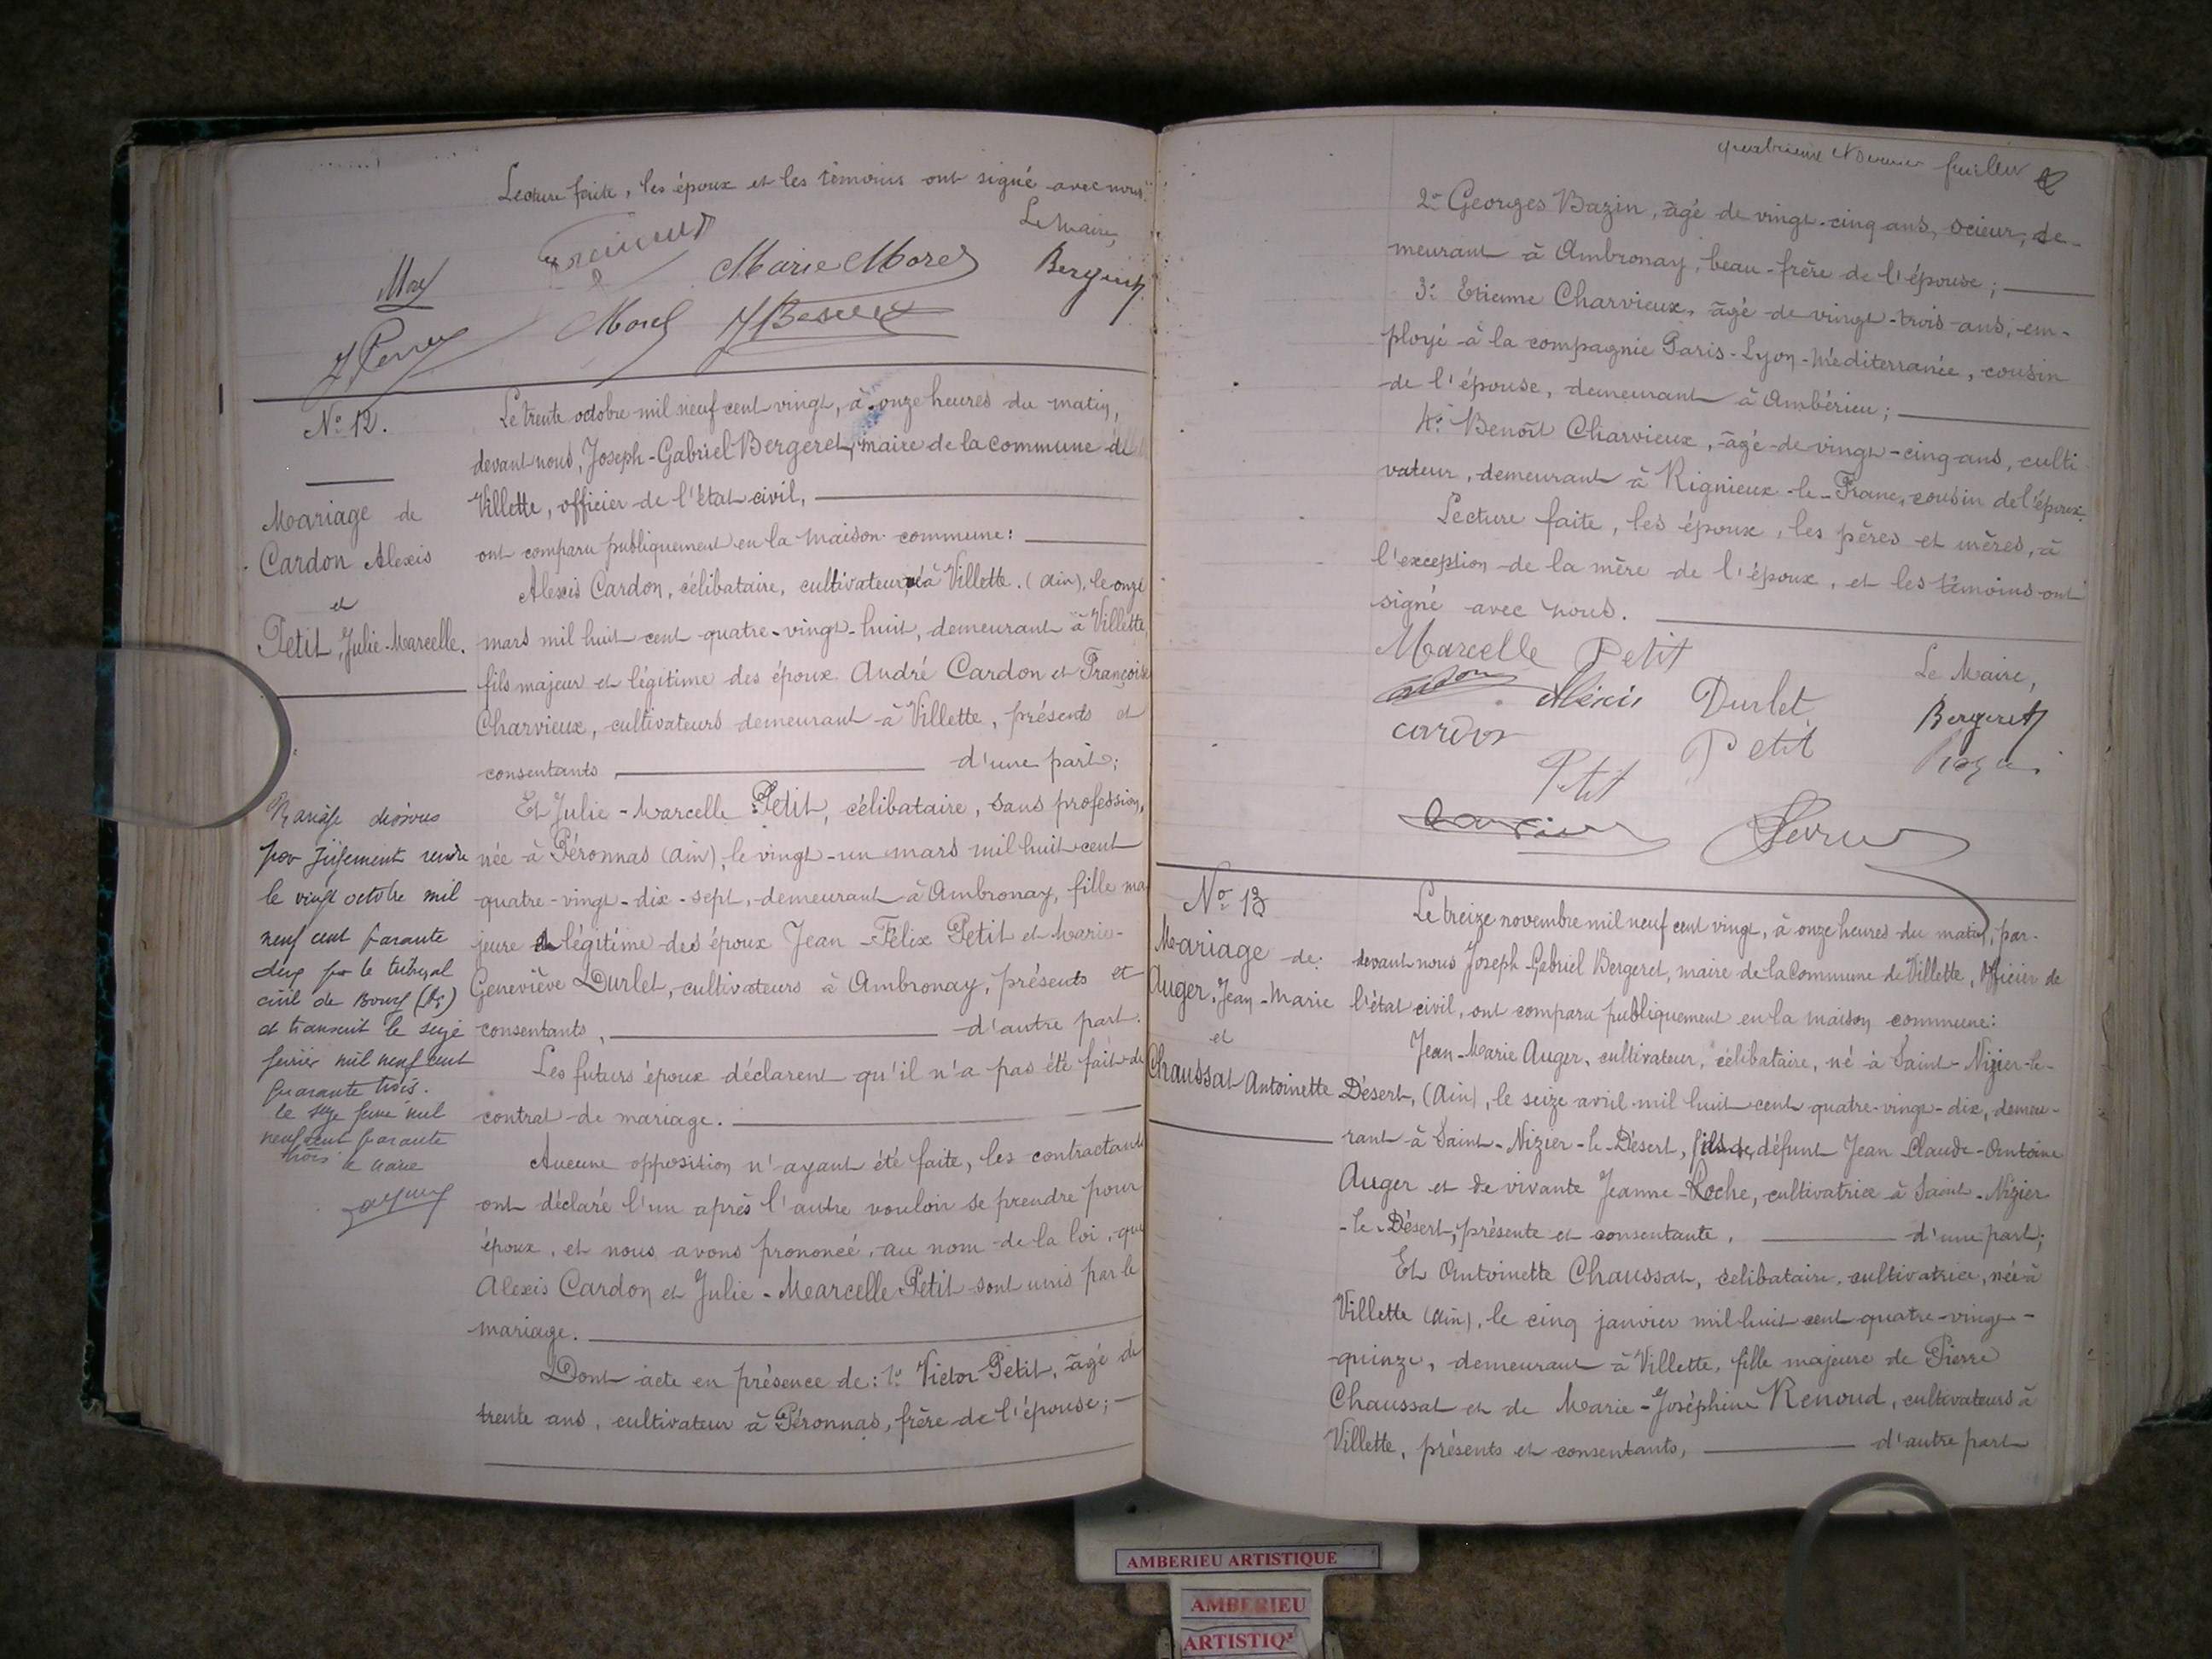 Lecture faite, les époux et les témoins ont signé avec nous.
Le Maire,
Marie Morel
Bergeret
Morel
J Perret
N° 12.
Mariage de
Cardon Alexis
et
Petit, Julie-Marcelle.
Le trente octobre mil neuf cent vingt, à onze heures du matin,
devant nous, Joseph-Gabriel Bergeret, maire de la commune de
Villette, officier de l'état civil,
ont comparu publiquement en la maison commune:
Alexis Cardon, célibataire, cultivateur, né à Villette (Ain), le onze
mars mil huit cent quatre-vingt-huit, demeurant à Villette,
fils majeur et légitime des époux André Cardon et Françoise
Charvieux, cultivateurs demeurant à Villette, présents et
consentants d'une part;
Et Julie-Marcelle Petit, célibataire, sans profession,
née à Péronnas (Ain), le vingt-un mars mil huit cent
quatre-vingt-dix-sept, demeurant à Ambronay, fille ma
jeure et légitime des époux Jean-Félix Petit et Marie-
Geneviève Durlet, cultivateurs à Ambronay, présents et
consentants, d'autre part.
Les futurs époux déclarent qu'il n'a pas été fait de
contrat de mariage.
Aucune opposition n'ayant été faite, les contractants
ont déclaré l'un après l'autre vouloir se prendre pour
époux, et nous avons prononcé, au nom de la loi, que
Alexis Cardon et Julie-Marcelle Petit sont unis par le
mariage.
Dont acte en présence de: 1° Victor Petit, âgé de
trente ans, cultivateur à Péronnas, frère de l'épouse;
Mariage dissous
par jugement rendu
le vingt octobre mil
neuf cent quarante
deux par le tribunal
civil de Bourg
et transcrit le seize
février mil neuf cent
quarante trois.
le seize février mil
neuf cent quarante
trois le maire
quatrième et dernier feuillet
2° Georges Bazin, âgé de vingt-cinq ans, scieur, de-
meurant à Ambronay, beau-frère de l'épouse;
3° Etienne Charvieux, âgé de vingt-trois ans, em-
ployé à la compagnie Paris-Lyon-Méditerranée, cousin
de l'épouse, demeurant à Ambérieu;
4° Benoît Charvieux, âgé de vingt-cinq ans, culti
vateur, demeurant à Rignieux-le-Franc, cousin de l'époux.
Lecture faite, les époux, les pères et mères, à
l'exception de la mère de l'époux, et les témoins ont
signé avec nous.
Marcelle Petit
Le Maire,
Cardon Alexis Durlet
Bergeret
Cardon
Petit
Petit
N° 13
Mariage de:
Auger, Jean-Marie
et
Chaussat Antoinette
Le treize novembre mil neuf cent vingt, à onze heures du matin, par-
devant nous Joseph-Gabriel Bergeret, maire de la Commune de Villette, Officier de
l'état civil, ont comparu publiquement en la maison commune:
Jean-Marie Auger, cultivateur, célibataire, né à Saint-Nizier-le-
Désert, (Ain), le seize avril mil huit cent quatre-vingt-dix, demeu-
rant à Saint-Nizier-le-Désert, fils de défunt Jean Claude-Antoine
Auger et de vivante Jeanne Roche, cultivatrice à Saint-Nizier
-le-Désert, présente et consentante, d'une part;
Et Antoinette Chaussat, célibataire, cultivatrice, née à
Villette (Ain), le cinq janvier mil huit cent quatre-vingt-
quinze, demeurant à Villette, fille majeure de Pierre
Chaussat et de Marie-Joséphine Renoud, cultivateurs à
Villette, présents et consentants, d'autre part
AMBERIEU ARTISTIQUE
AMBERIEU
ARTISTIQ